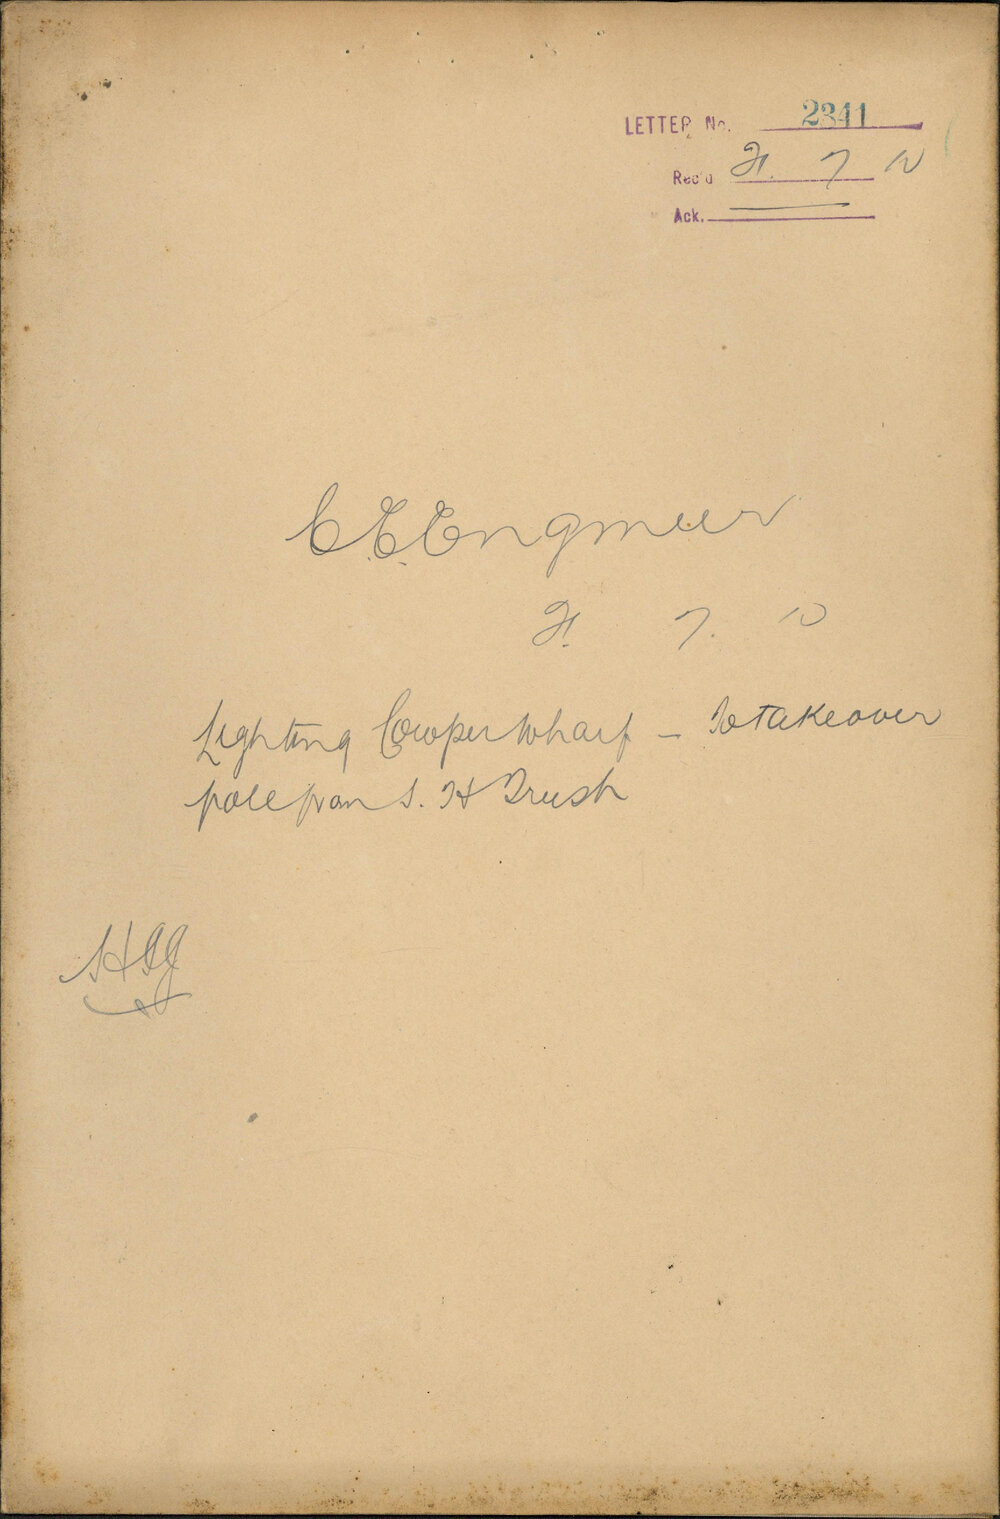 LETTER No. 2341
Rec'd 21. 7 10
Ack.
C. E. Engineer
21. 7. 10
Lighting Cowper Wharf – To take over
pole from S. H Trust